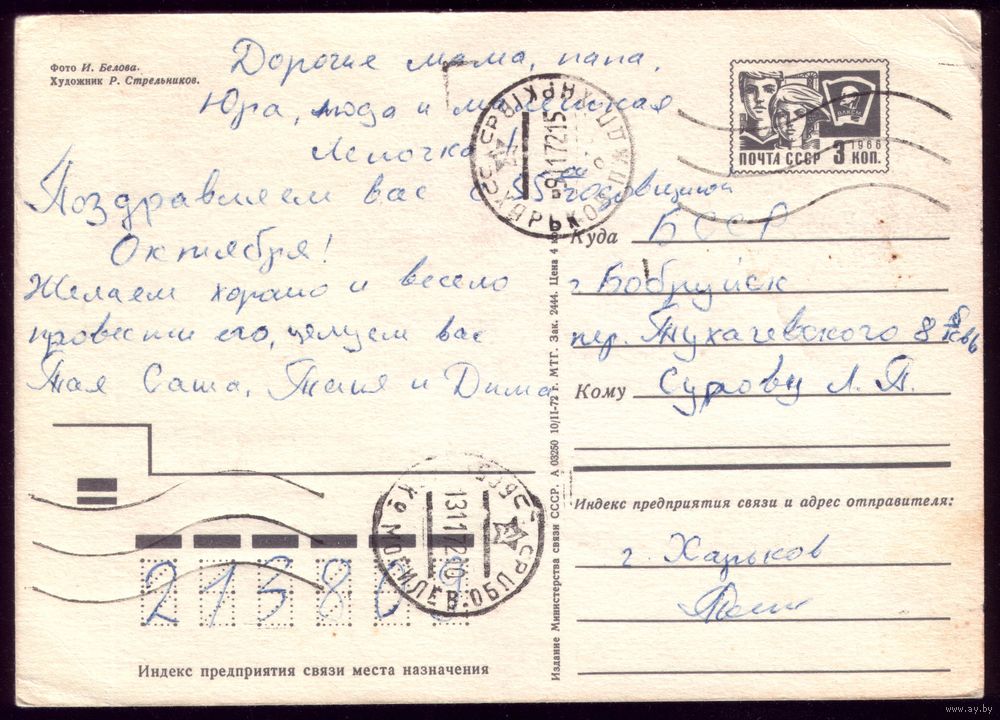 Фото И. Белова.
Художник Р. Стрельников.
Дорогие мама, папа,
Юра, и маленькая
Леночка!
Поздравляем вас с 55ой годовщиной
Октября!
Желаем хорошо и весело
провести его, целуем вас
Тая Саша, Таня и Дима
ВЛКСМ
1966
ПОЧТА СССР 3 КОП.
ХАРКІВ
УССР
9 11 72 15
ХАРЬКОВ
Куда БССР
г. Бобруйск
пер. Тухачевского 8
Кому Сурову Л. П.
Издание Министерства связи СССР. А 03250 10/II-72 г. МТГ. Зак. 2444. Цена 4 коп.
Индекс предприятия связи и адрес отправителя:
г. Харьков
БССР
13 11 72 20
МОГИЛЕВ. ОБЛ
213809
Индекс предприятия связи места назначения
www.ay.by